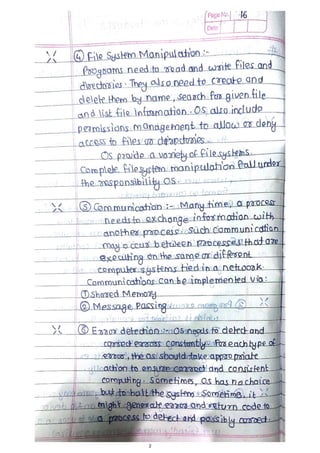 Page No. 16
Date
④ File System Manipulation :-
Programs need to read and write files and
directories. They also need to create and
delete them by name, search for given file
and list file Information. OS, also include
permissions management to allow or deny
access to files or directories.
OS provide a variety of file systems.
Complete filesystem manipulation fall under
the responsibility OS.
⑤ Communication :- Many time, a process
needs to exchange information with
another process. Such communication
may occur between processes that are
executing on the same or different
computer systems tied in a network.
Communications can be implemented via:
① Shared Memory
② Message Passing
⑥ Error detection :- OS needs to detect and
correct errors constantly. For each type of
error, the os should take appropriate
action to ensure correct and consistent
computing. Sometimes, OS has no choice
but to halt the system. Sometime, it
might generate error and return code to
a process to detect and possibly correct.
2